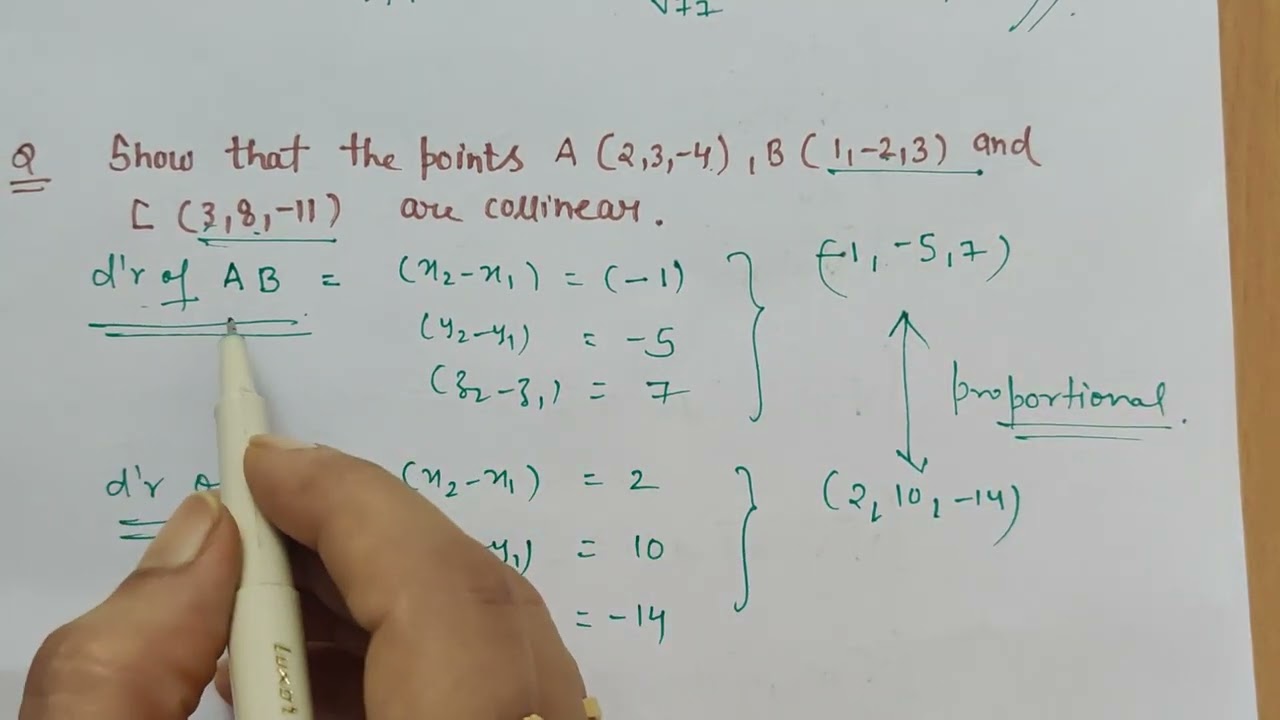 √77
Q Show that the points A (2,3,-4), B (1,-2,3) and
C (3,8,-11) are collinear.
d'r of AB = (x₂-x₁) = (-1)
(y₂-y₁) = -5
(z₂-z₁) = 7
(-1, -5, 7)
proportional.
d'r (x₂-x₁) = 2
y₁) = 10
= -14
(2, 10, -14)
Luxor